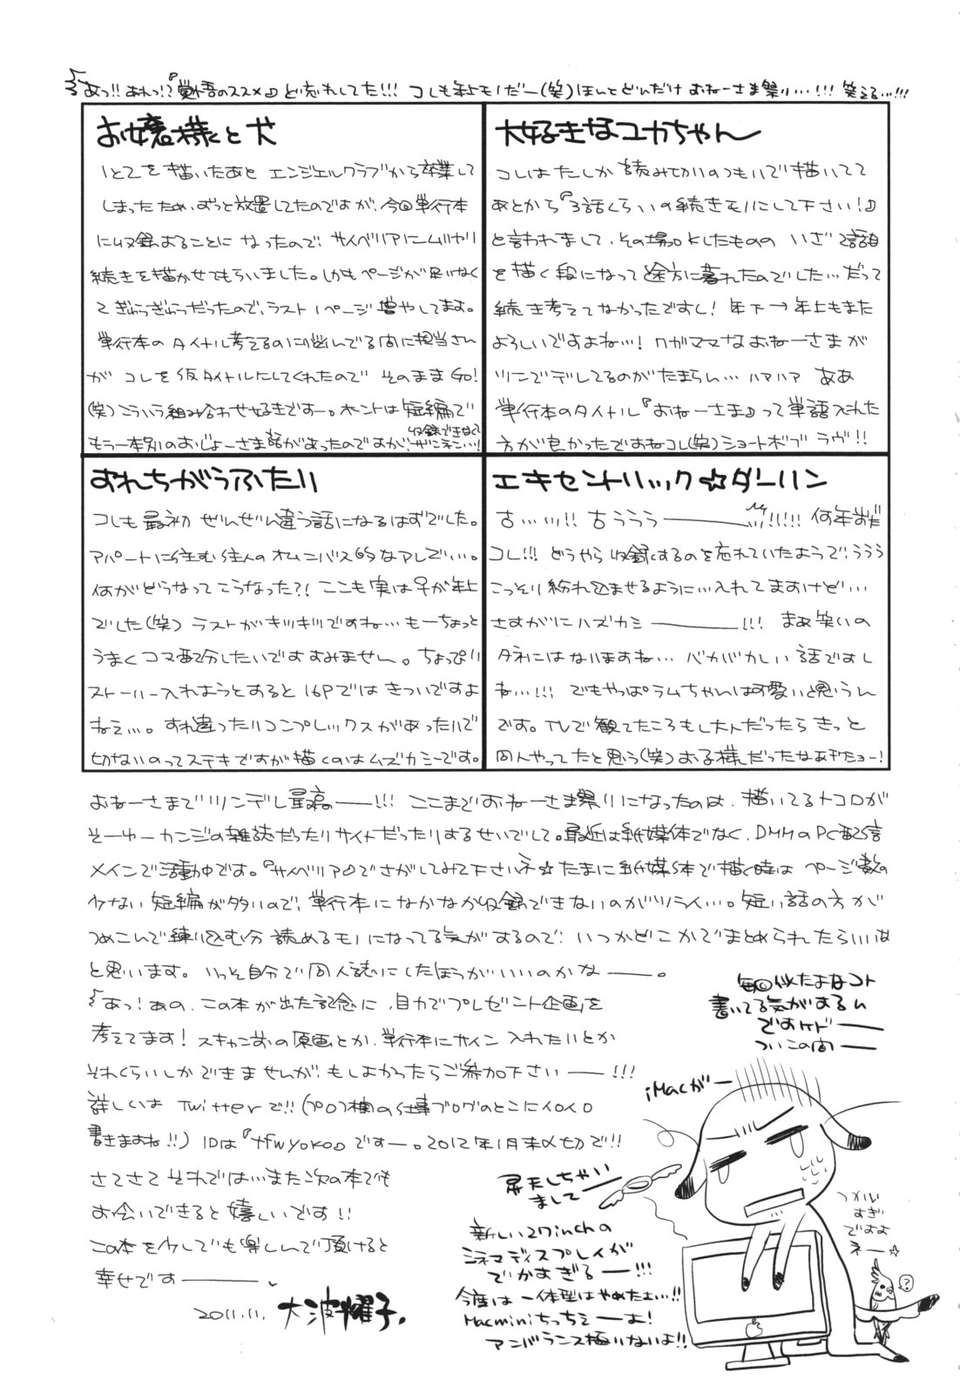 あっ!!あれっ!?『覚悟のススメ』ど忘れしてた!!!コレも年上モノだー(笑)ほんとどんだけおねーさま祭り…!!!笑える…!!!
お嬢様と犬
1と2を描いたあと エンジェルクラブから卒業して
しまったため、ずっと放置してたのですが、今回単行本
に収録することに なったので、サイベリアにムリヤリ
続きを描かせてもらいました。しかもページが足りなく
てぎゅうぎゅうだったので、ラスト1ページ増やしてます。
単行本のタイトル考えるのに悩んでる間に担当さん
が コレを仮タイトルにしてくれたので そのままGO!
(笑)こういう組み合わせ好きですー。ホントは短編で
もう一本別のおじょーさま話があったのですが、収録できなくてザンネン…!
大好きなユカちゃん
コレはたしか 読みきりのつもりで描いてて
あとから『3話くらいの続きモノにして下さい!』
と言われまして、その場OKしたものの いざ2話目
を描く段になって途方に暮れたのでした…だって
続き考えてなかったですし! 年下→年上もまた
よろしいですよね…! ワガママなおねーさまが
ツンでデレしてるのがたまらん…ハアハア ああ
単行本のタイトル『おねーさま』って単語入れた
方が良かったですねコレ(笑)ショートボブ ラヴ!!
すれちがうふたり
コレも最初 ぜんぜん違う話になるはずでした。
アパートに住む住人のオムニバス的なアレで…。
何がどうなってこうなった?! ここも実は♀が年上
でした(笑) ラストがキツキツですね… もーちょっと
うまくコマ配分したいですすみません〜。ちょっぴり
ストーリー入れようとすると16Pではきついですよ
ねぇ…。すれ違ったりコンプレックスがあったりで
切ないのってステキですが描くのはムズカシーです。
エキセントリック☆ダーリン
古…ッ!! 古うううーーーッ!!!!! 何年前だ
コレ!!! どうやら収録するのを忘れていたようで、ううう
こっそり紛れ込ませるように…入れてますけど…
さすがにハズカシーーー!!! まぁ笑いの
タネにはなりますね… バカバカしい話ですし
ね…!!! でもやっぱラムちゃんは可愛いと思うん
です。TVで観てたころもし大人だったらきっと
同人やってたと思う(笑)お子様だったなあたしー!
おねーさまでツンデレ最高ーー!!! ここまでおねーさま祭りになったのは、描いてるトコロが
そーゆーカンジの雑誌だったりサイトだったりするせいでして。最近は紙媒体でなく、DMMのPC配信
メインで活動中です。『サイベリア』でさがしてみて下さいネ☆たまに紙媒体で描く時は ページ数の
少ない 短編が多いので、単行本になかなか収録できないのがツライ…。短い話の方が
つめこんで練り込む分 読めるモノになってる気がするので、いつかどこかでまとめられたらいいな
と思います。いっそ自分で同人誌にしたほうがいいのかなーー。
あっ!あの、この本が出た記念に、自力でプレゼント企画を
考えてます! スキャン前の原画とか、単行本にサイン入れたいとか
それくらいしかできませんが、もしよかったらご参加下さいーー!!!
詳しいは Twitterで!!(プロフ欄の仕事ブログのとこにイロイロ
書きますね!!) IDは『tfwyoko』ですー。2012年1月末〆切で!!
さてさて それでは…また次の本でも
お会いできると嬉しいです!!
この本を少しでも楽しんで頂けると
幸せですーーー
2011.11. 大波耀子.
毎回似たよなコト
書いてる気がするん
ですけどーー
ついこの間ーー
iMacがー
昇天しちゃい
ましてー
新しい27inchの
シネマディスプレイが
でかすぎるーー!!!
今度は一体型はやめたよ…!!
Macminiちっちぇーよ!
アンバランス極りないよ!!
つかい
すぎ
ですよ
ネー☆
?